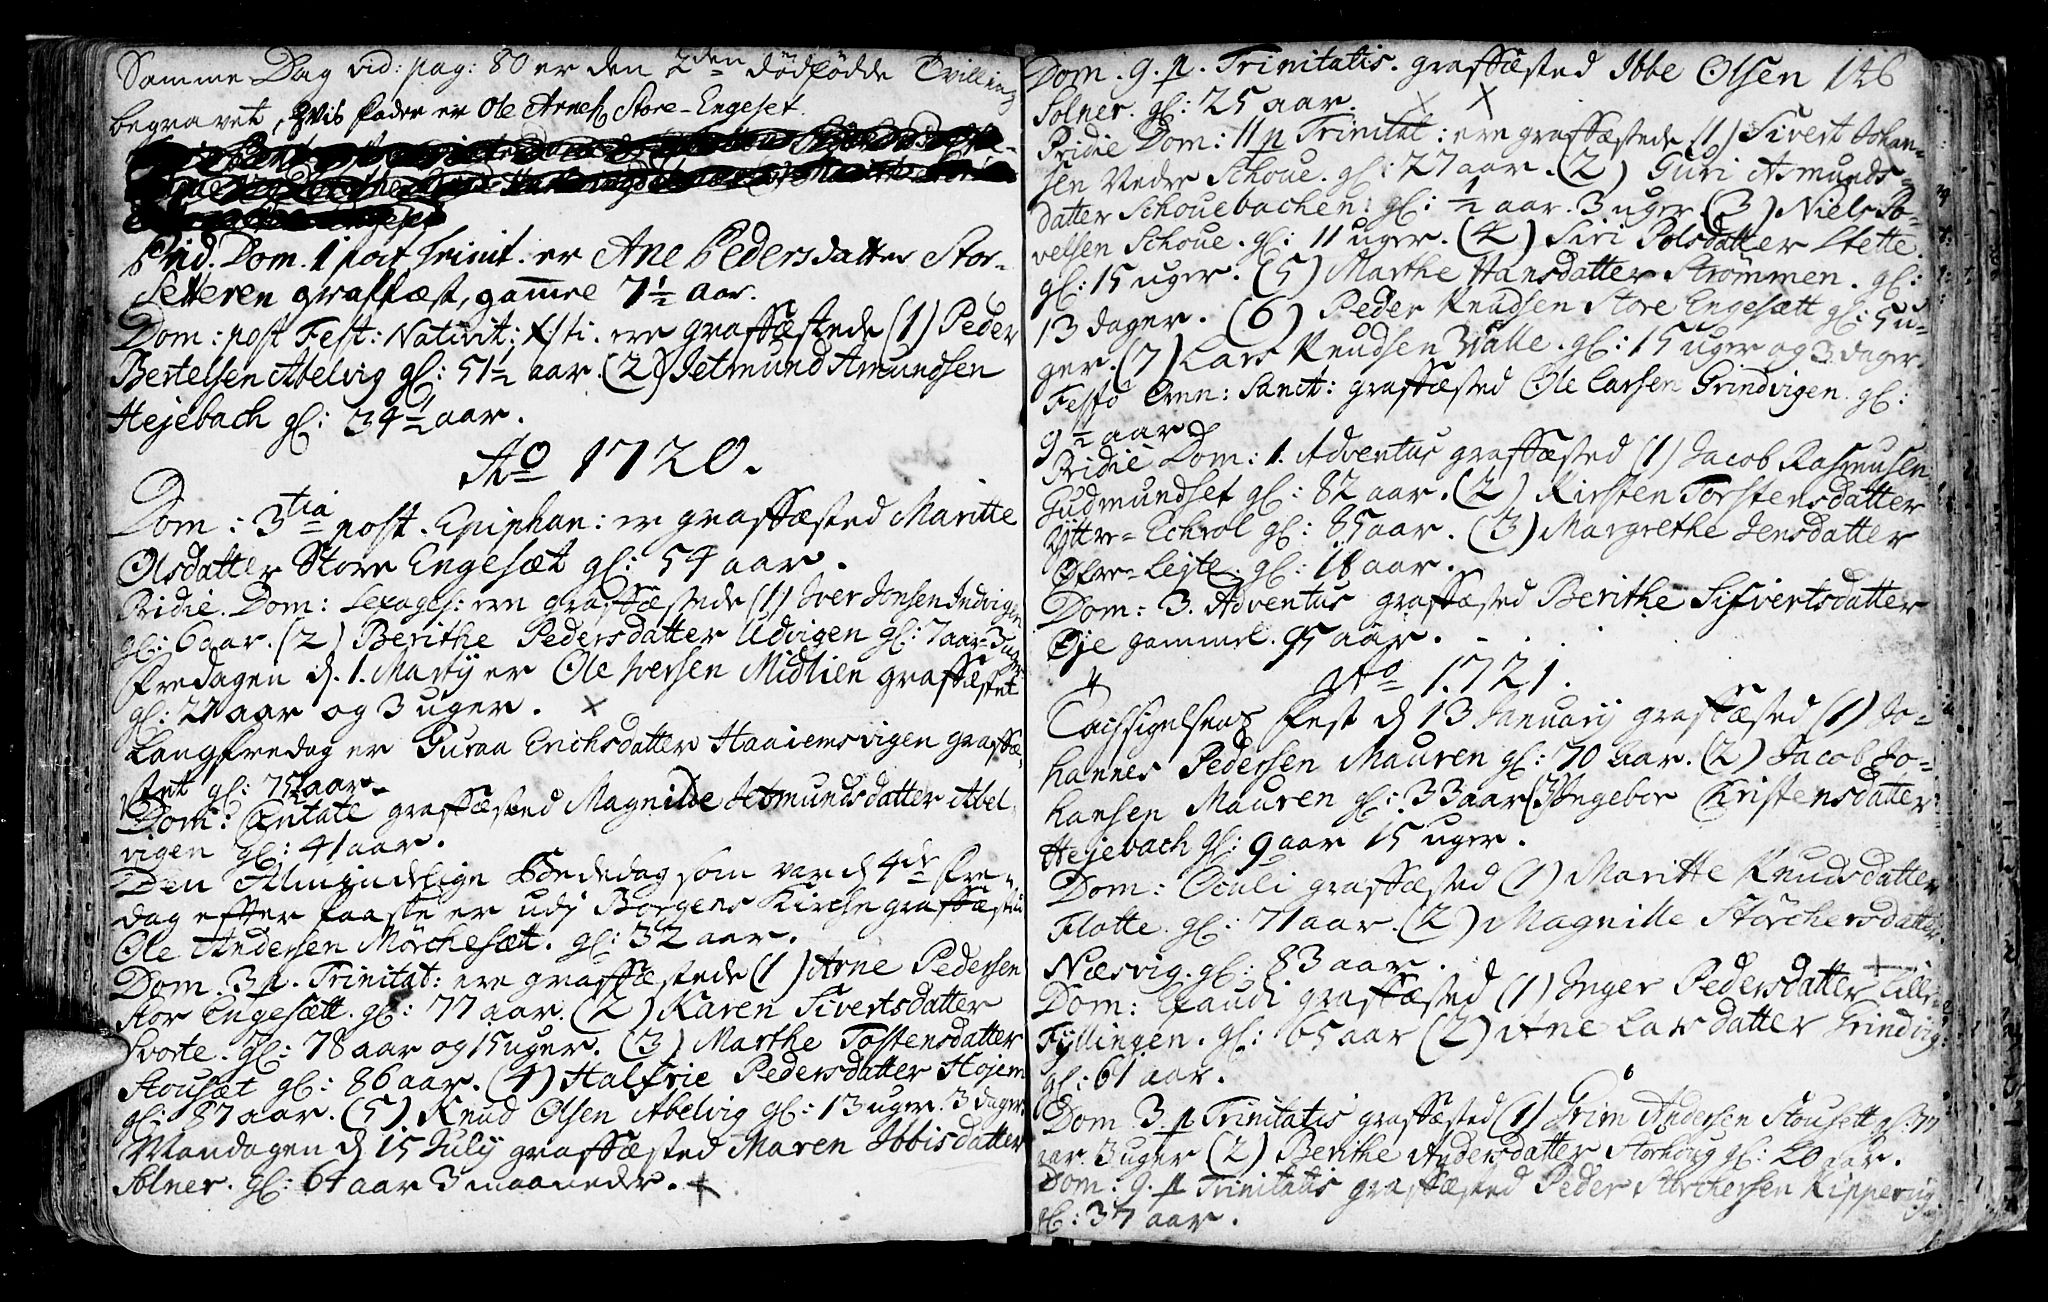 Samme Dag vid: pag: 80 er den 2den dödfödde Tvilling
begravet, hvis fader er Ole Arnes: Store-Engeset.
Prid. Dom. 1 post Trinit. er Ane Pedersdatter Stor-
Setteren graffæst, gamle 7 1/2 aar.
Dom: post Fest: Nativit: Xsti. ere graffæstede (1) Peder
Bertelsen Abelvig gl: 51 1/2 aar. (2) Jetmund Amundsen
Hejebach gl: 34 1/2 aar.
Ao 1720.
Dom: 3tia post. Epiphan: er graffæsted Maritte
Olsdatter Store Engesæt gl: 54 aar.
Pridie. Dom: Sexages: ere graffæstede (1) Iver Jonsen Indvigen
gl: 6 aar. (2) Berithe Pedersdatter Udvigen gl: 7 aar 3 uger
Fredagen d. 1. Martij er Ole Iversen Midlien graffæstet
gl: 27 aar og 3 uger. x
Langfredag er Guraa Erichsdatter Haaiemsvigen graffæ-
stet gl: 75 1/2 aar.
Dom: Cantate graffæsted Magnilde Jetmundsdatter Abel
vigen gl: 41 aar.
Den Almindelige Bededag som var d 4de Fre-
dag efter Paaske er udj Borgens Kirche graffæsted
Ole Andersen Mörchesæt. gl: 32 aar.
Dom. 3 p. Trinitat: ere graffæstede (1) Arne Pedersen
Stor Engesætt. gl: 77 aar. (2) Karen Sivertsdatter
Svorte. gl: 78 aar og 15 uger. (3) Marthe Tostensdatter
Stousæt gl: 86 aar. (4) Halfrie Pedersdatter Hojem
gl: 87 aar. (5) Knud Olsen Abelvig gl: 13 uger 3 dager.
Mandagen d 15 July graffæsted Maren Ibbisdatter
Solner. gl: 64 aar 3 maaneder. +
Dom. 9. p. Trinitatis. graffæsted Ibbe Olsen 126
Solner. gl: 25 aar. x x
Pridie Dom: 11 p Trinitat: ere graffæstede (1) Sivert Johan-
sen Nedre Schoue. gl: 27 aar. (2) Guri Asmunds-
datter Schouebachen: gl: 1/2 aar. 3 uger (3) Niels Po-
velsen Schoue. gl: 11 uger. (4) Siri Polsdatter Slette.
gl: 15 uger. (5) Marthe Hansdatter Strömmen. gl:
13 dager. (6) Peder Knudsen Store Engesætt gl: 5 u-
ger. (7) Lars Knudsen Walle. gl: 15 uger og 3 dager.
Festo Omn: Sanct: graffæsted Ole Larsen Grindvigen gl:
9 1/2 aar
Pridie Dom: 1. Adventus graffæsted (1) Jacob Rasmusen
Gudmundset gl: 82 aar. (2) Kirsten Torstensdatter
Yttre-Echrol gl: 85 aar. (3) Margrethe Jensdatter
Öfre-Lejte. gl: 18 aar.
Dom: 3. Adventus graffæsted Berithe Sifvertsdatter
Öje gammel. 95 aar.
Ao 1721.
Tachsigelsens Fest d 13 Januarij graffæsted (1) Jo-
hannes Pedersen Mauren gl: 70 aar. (2) Jacob Jo-
hansen Mauren gl: 33 aar (3) Ingebor Christensdatter
Hejebach gl: 9 aar 15 uger.
Dom: Oculi graffæsted (1) Maritte Knudsdatter
Flotte. gl: 71 aar. (2) Magnille Störchersdatter
Næsvig. gl: 83 aar. +
Dom: Exaudi graffæsted (1) Inger Pedersdatter Lille
Fyllingen. gl: 65 aar (2) Ane Larsdatter Grindvig
gl: 61 aar.
Dom 3. p Trinitatis graffæsted (1) Grim Andersen Stousett gl: 37
aar. 3 uger (2) Berithe Andersdatter Storhoug gl: 20 aar.
Dom: 9. p Trinitatis graffæsted Peder Störchersen Kippervig
gl: 37 aar.